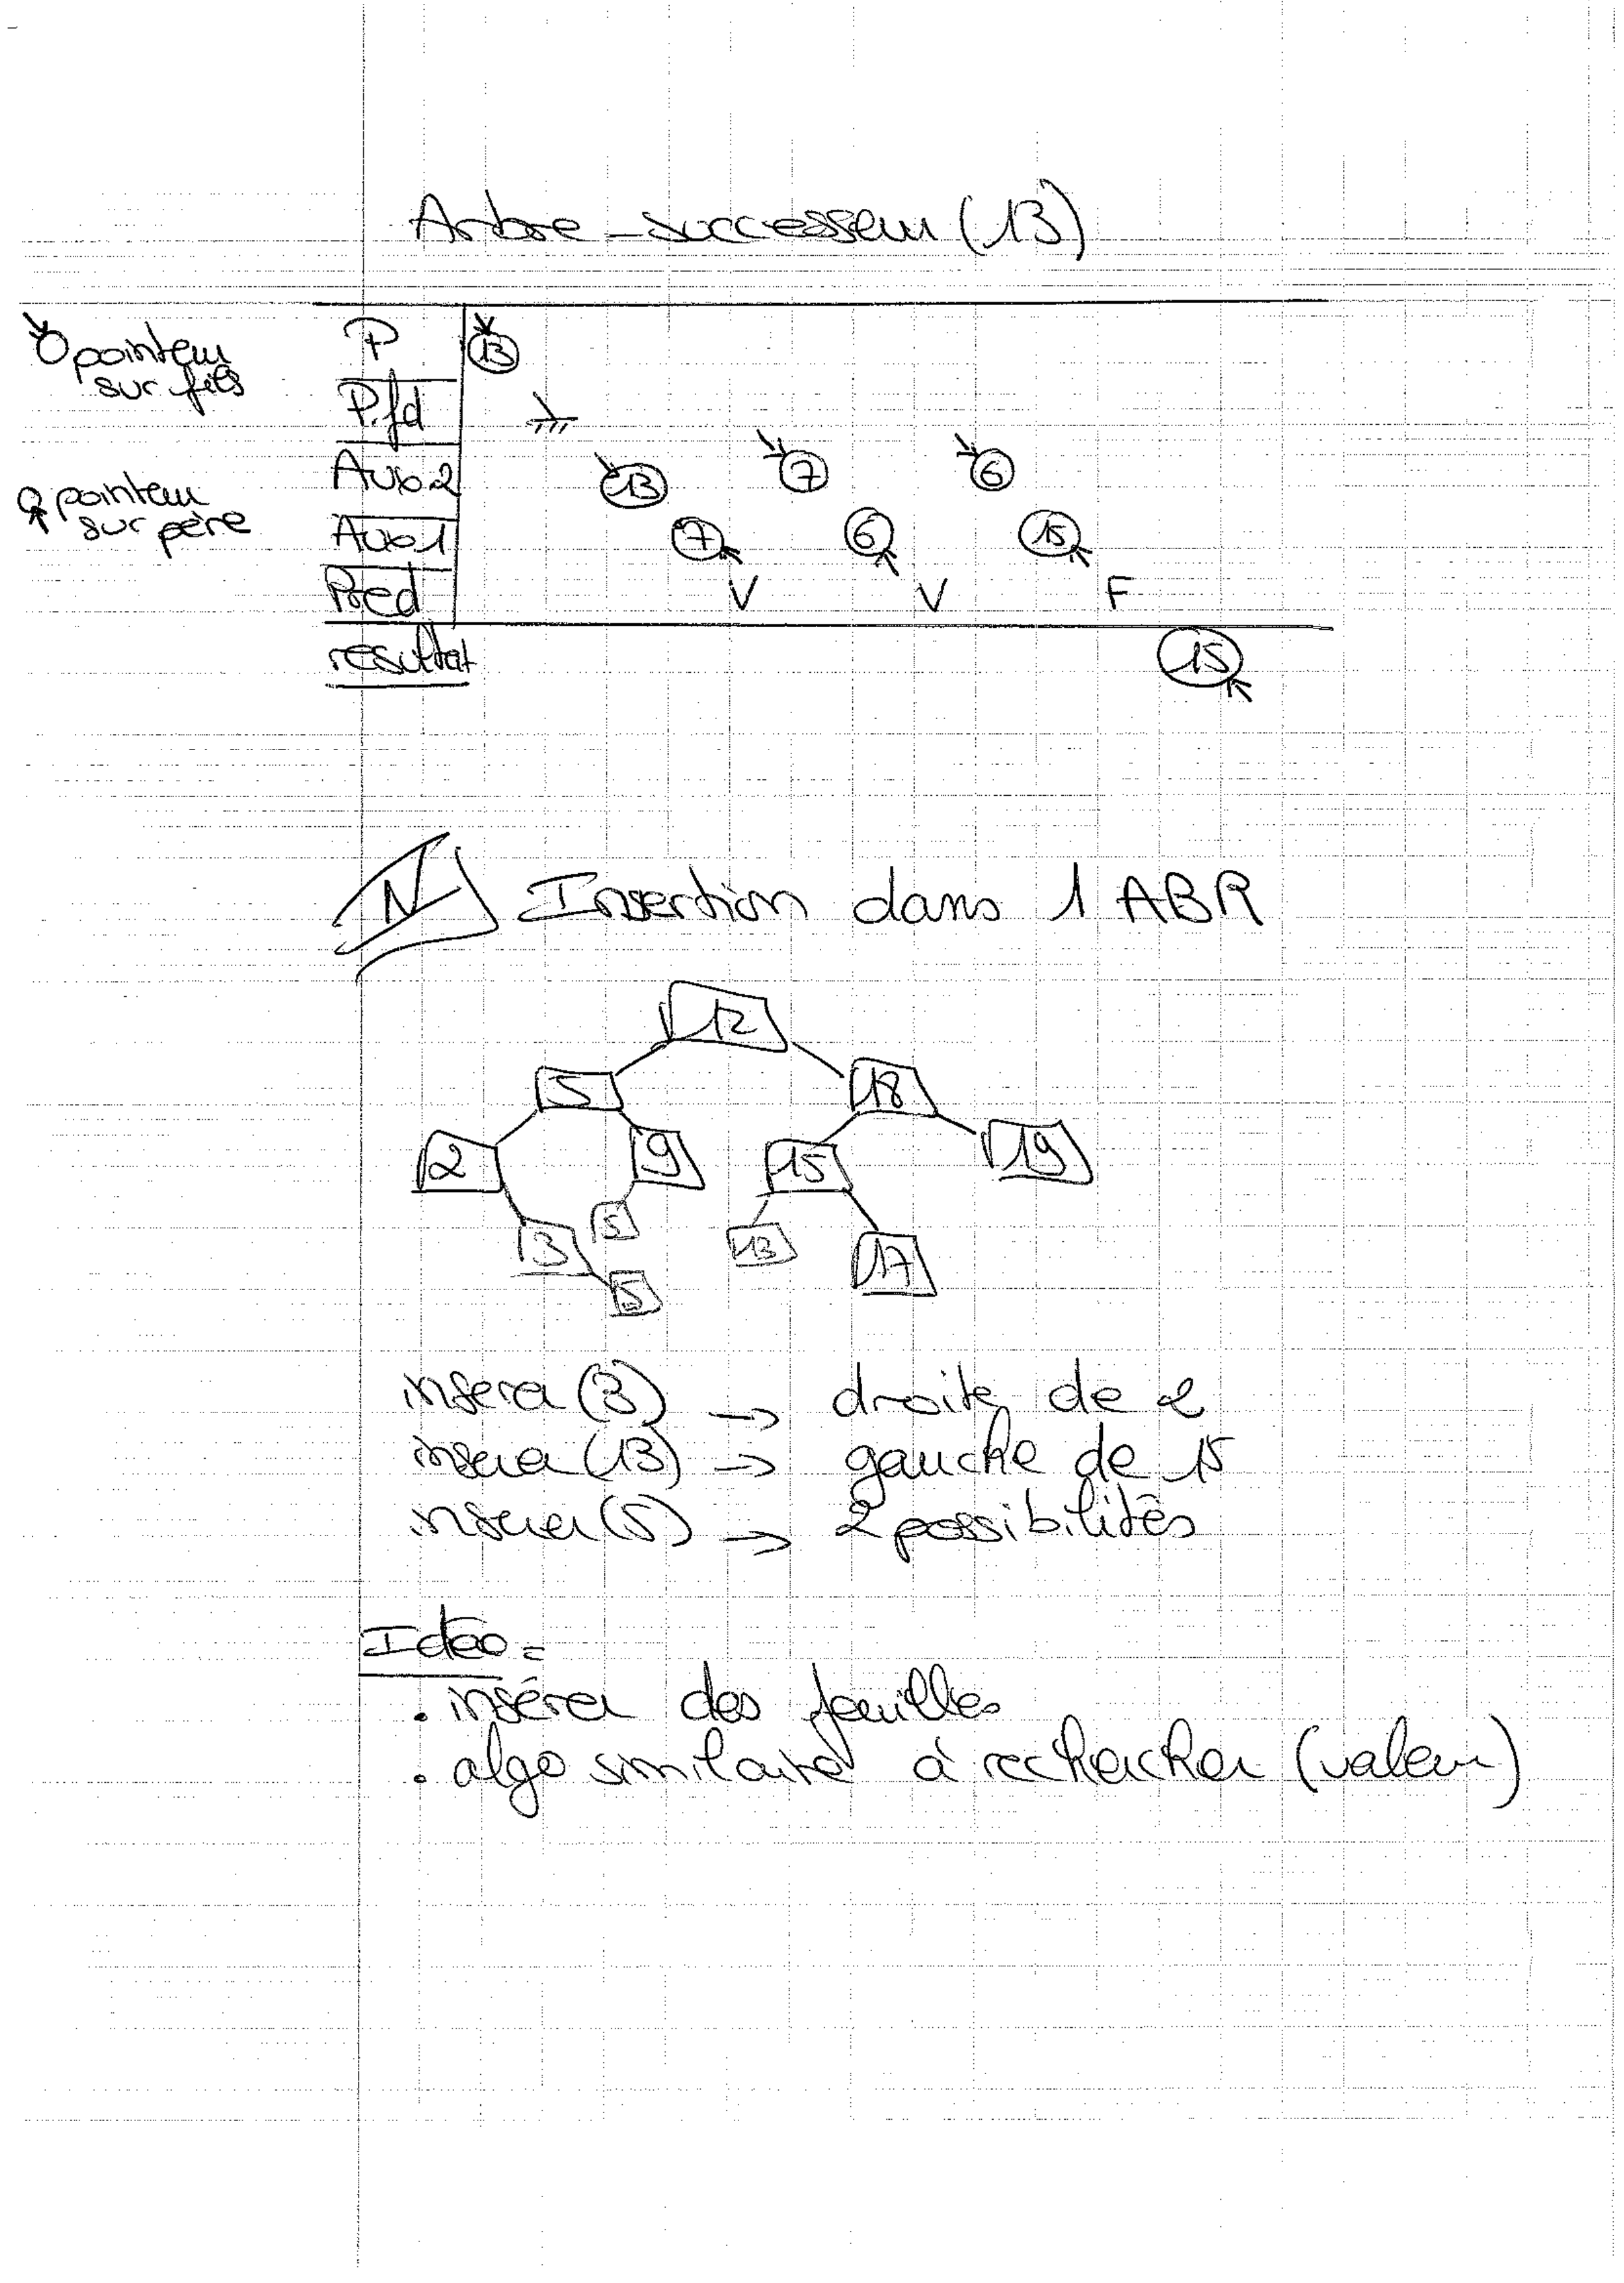 Arbre_successeur (13)
pointeur
sur fils
P 13
P.fd
Aux2 13 7 6
pointeur
sur père
Aux1 7 6 15
Pred V V F
resultat 15
Insertion dans 1 ABR
12
5 18
2 9 15 19
3 5 13 17
5
insérer (3) → droite de 2
insérer (13) → gauche de 15
insérer (5) → 2 possibilités
Idée =
. insérer des feuilles
. algo similaire à rechercher (valeur)